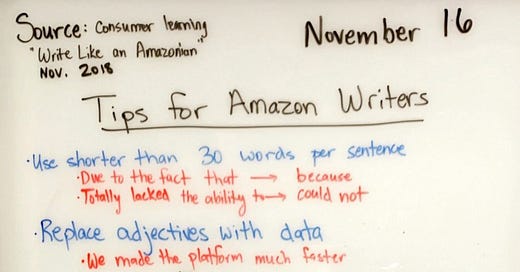 Source: Consumer learning
"Write Like an Amazonian"
Nov. 2018
November 16
Tips for Amazon Writers
·Use shorter than 30 words per sentence
·Due to the fact that → because
·Totally lacked the ability to → could not
·Replace adjectives with data
·We made the platform much faster